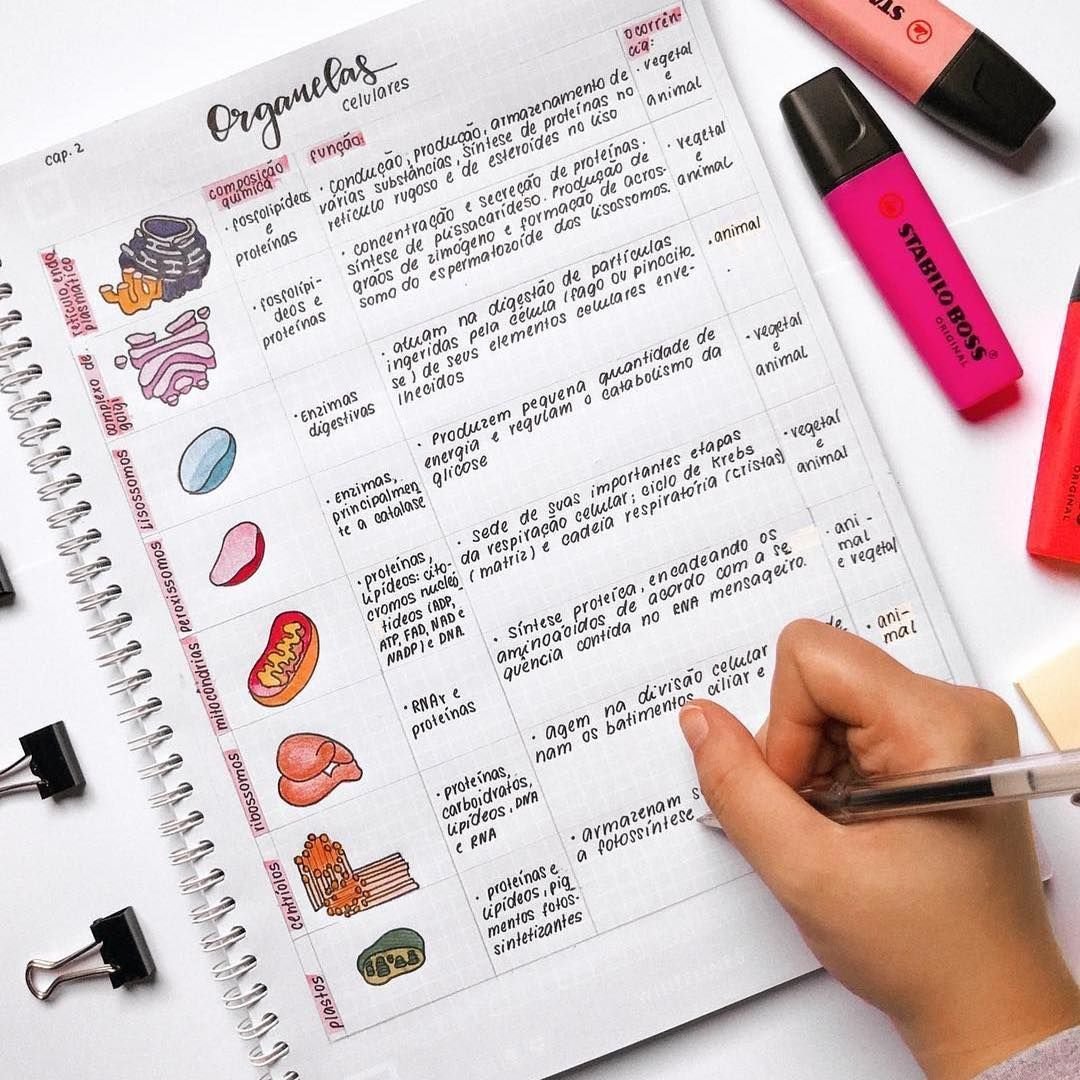 cap. 2
Organelas
celulares
composição
química
função:
ocorrên-
cia:
retículo endo
plasmático
· fosfolipídeos
e
proteínas
· condução, produção, armazenamento de
várias substâncias, síntese de proteínas no
retículo rugoso e de esteroides no liso
· vegetal
e
animal
complexo de
golgi
· fosfolipí-
deos e
proteínas
· concentração e secreção de proteínas.
síntese de plissacarídeso. Produção de
grãos de zimogeno e formação de acros-
somo do espermatozoide dos lisossomos.
· vegetal
e
animal
lisossomos
· Enzimas
digestivas
· atuam na digestão de partículas
ingeridas pela célula (fago ou pinocito
se) de seus elementos celulares enve-
lhecidos
· animal
peroxissomos
· Enzimas,
principalmen
te a catalase
· Produzem pequena quantidade de
energia e regulam o catabolismo da
glicose
· vegetal
e
animal
mitocôndrias
· proteínas,
lipídeos: cito-
cromos nucleó
tideos (ADP,
ATP, FAD, NAD e
NADP) e DNA
· sede de suas importantes etapas
da respiração celular; ciclo de Krebs
(matriz) e cadeia respiratória (cristas)
· vegetal
e
animal
ribossomos
· RNAr e
proteínas
· síntese proteíca, encadeando os
aminoácidos de acordo com a se
quência contida no RNA mensageiro.
· ani-
mal
e vegetal
centríolos
· proteínas,
carboidratos,
lipídeos, DNA
e RNA
· agem na divisão celular
nam os batimentos ciliar e
de
· ani-
mal
plastos
· proteínas e
lipídeos, pig
mentos fotos-
sintetizantes
· armazenam s
a fotossíntese
STABILO BOSS
ORIGINAL
STA
ORIGINAL